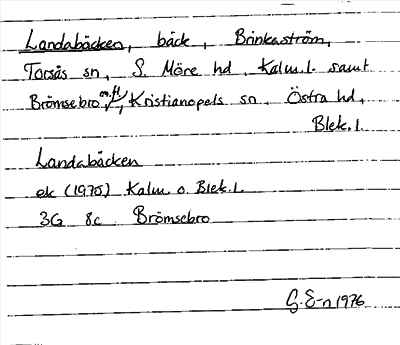 Landabäcken, bäck, Brinkaström,
Torsås sn, S. Möre hd, Kalm. l. samt
Brömsebro m.fl., Kristianopels sn, Östra hd,
Blek. l.
Landabäcken
ek (1970) Kalm o. Blek. l.
3G 8c Brömsebro
G. E-n 1976